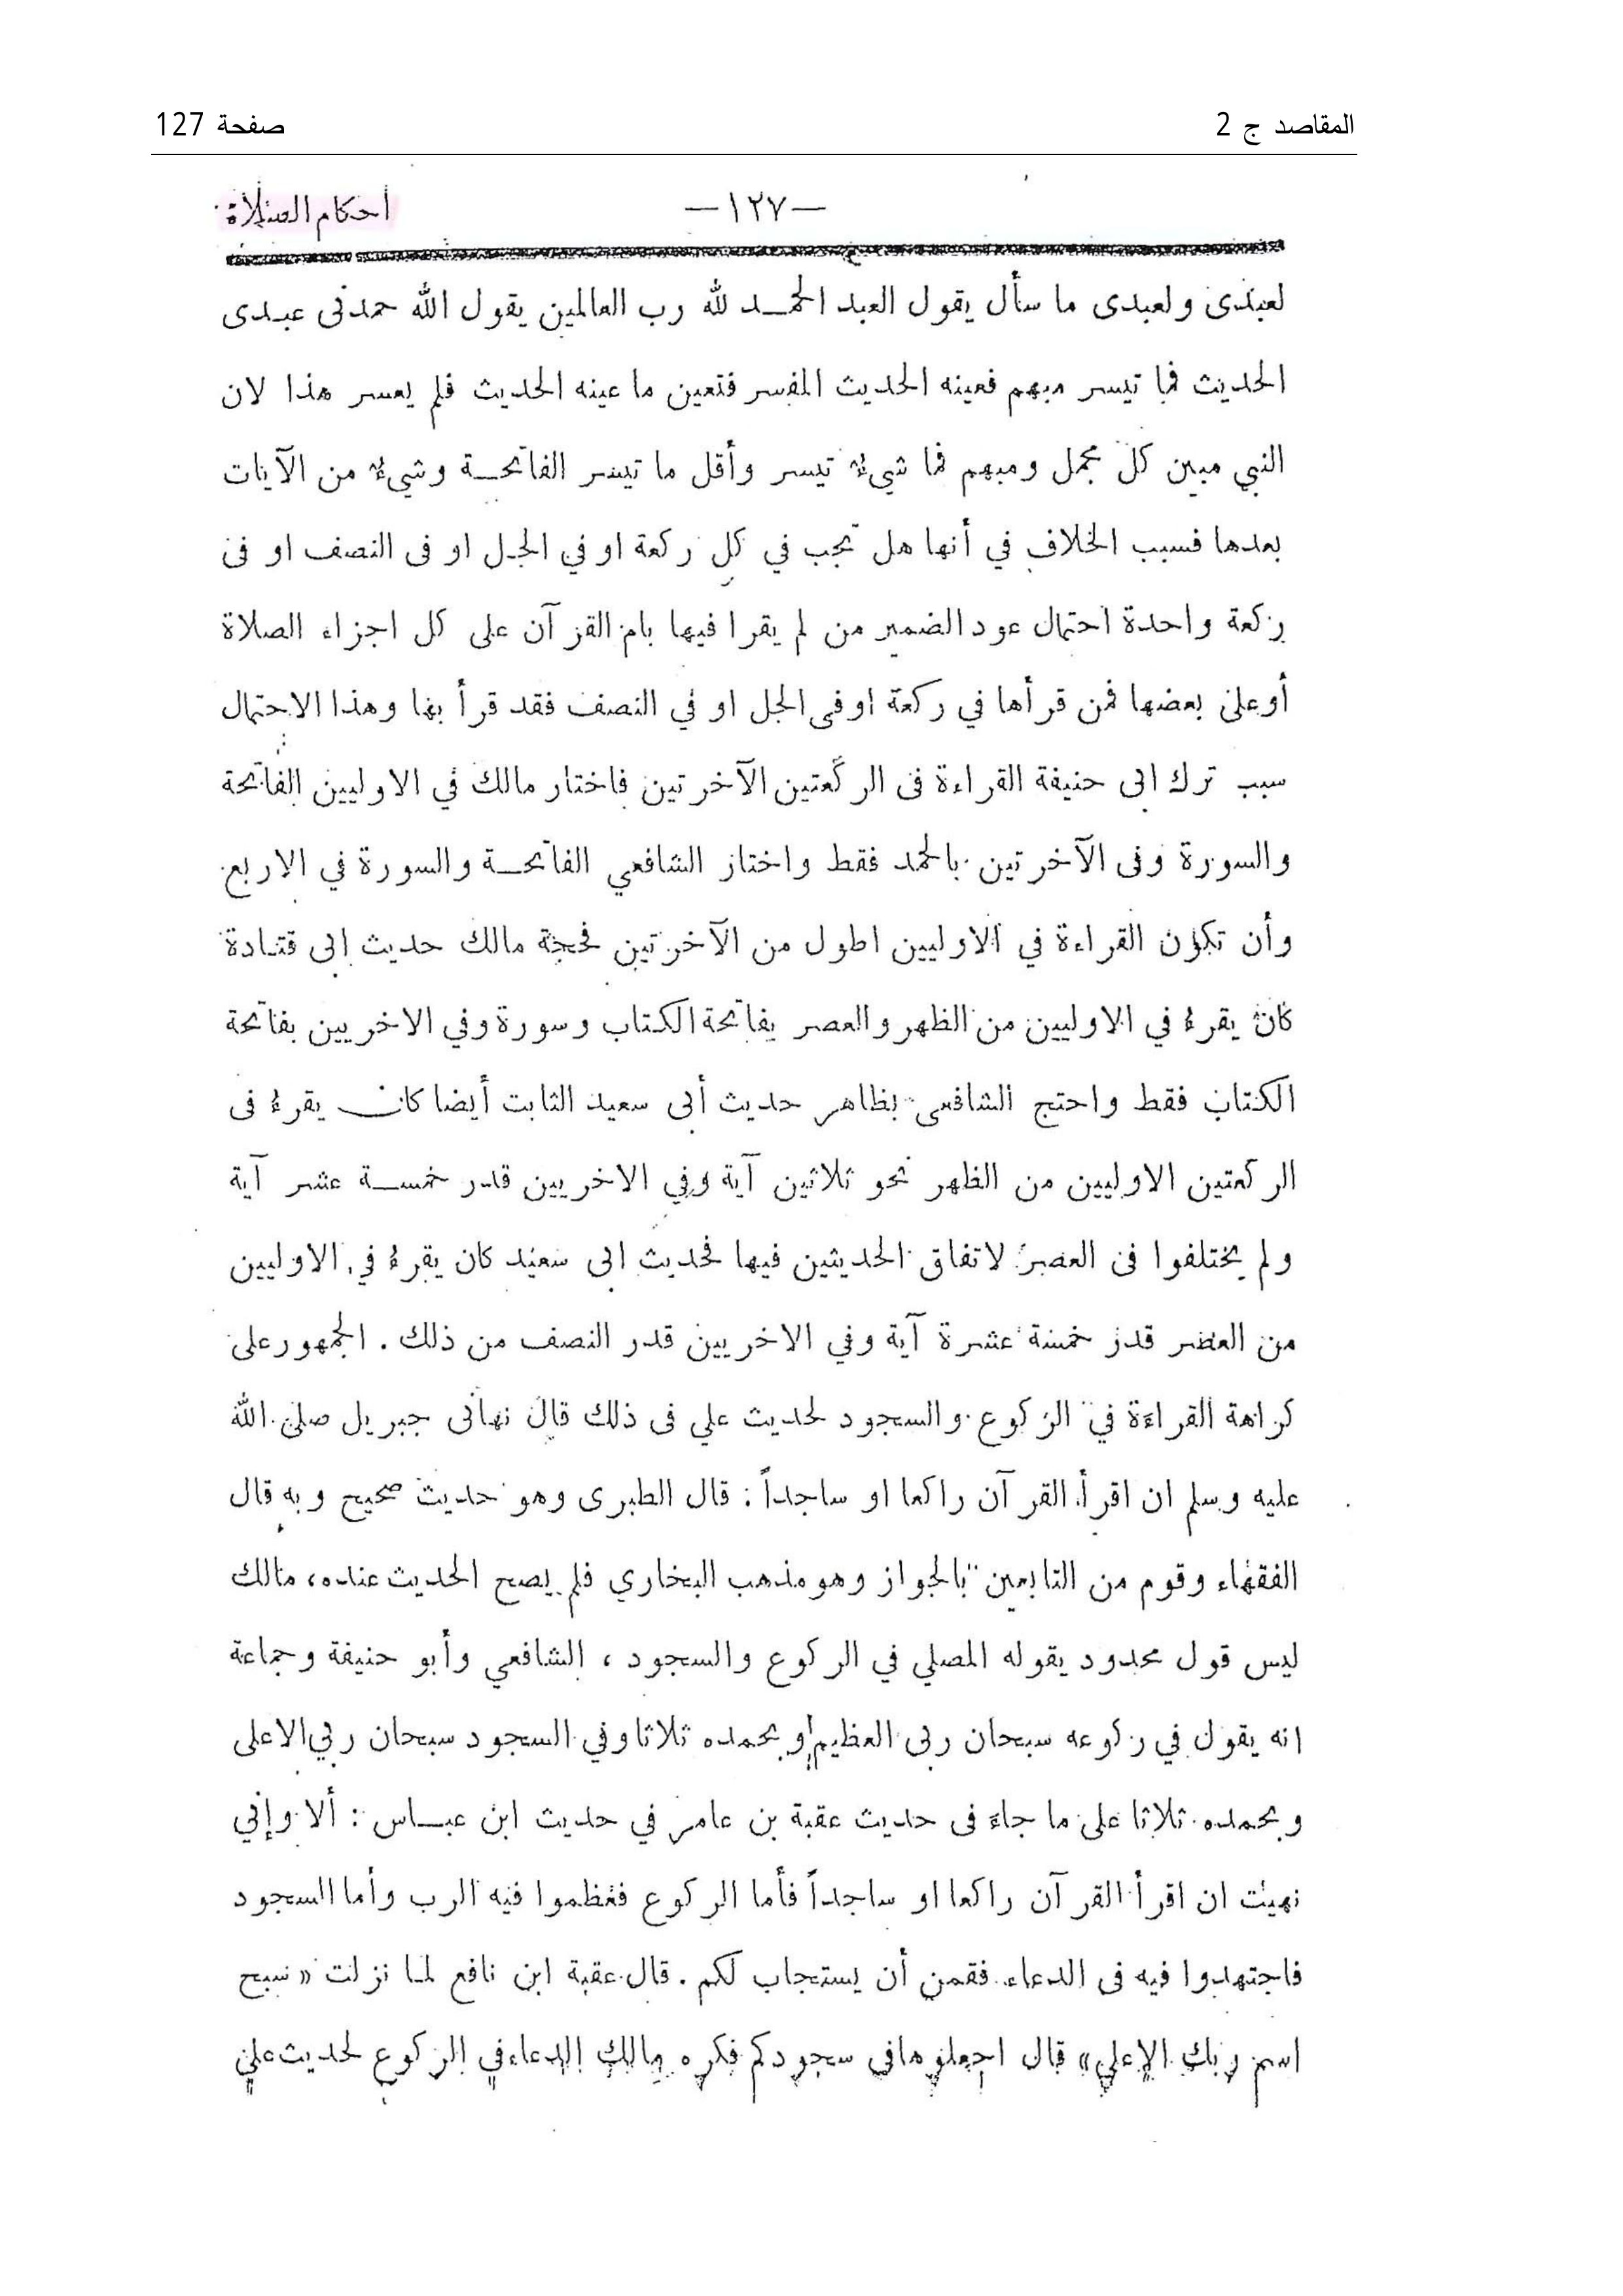 المقاصد ج 2
صفحة 127
—١٢٧—
أحكام الصلاة
لعبدى ولعبدى ما سأل يقول العبد الحمد لله رب العالمين يقول الله حمدنى عبدى
الحديث فما تيسر مبهم فعينه الحديث المفسر فتعين ما عينه الحديث فلم يعسر هذا لان
النبي مبين كل مجمل ومبهم فما شيء تيسر وأقل ما تيسر الفاتحة وشيء من الآيات
بعدها فسبب الخلاف في أنها هل تجب في كل ركعة او في الجل او فى النصف او فى
ركعة واحدة احتمال عود الضمير من لم يقرا فيها بام القرآن على كل اجزاء الصلاة
أو على بعضها فمن قرأها في ركعة او فى الجل او في النصف فقد قرأ بها وهذا الاحتمال
سبب ترك ابى حنيفة القراءة فى الركعتين الآخرتين فاختار مالك في الاوليين الفاتحة
والسورة وفى الآخرتين بالحمد فقط واختار الشافعي الفاتحة والسورة في الاربع
وأن تكون القراءة في الاوليين اطول من الآخرتين فحجة مالك حديث ابى قتادة
كان يقرء في الاوليين من الظهر والعصر بفاتحة الكتاب وسورة وفي الاخريين بفاتحة
الكتاب فقط واحتج الشافعى بظاهر حديث أبى سعيد الثابت أيضا كان يقرء فى
الركعتين الاوليين من الظهر نحو ثلاثين آية وفي الاخريين قدر خمسة عشر آية
ولم يختلفوا فى العصر لاتفاق الحديثين فيها فحديث ابى سعيد كان يقرء في الاوليين
من العصر قدر خمسة عشرة آية وفي الاخريين قدر النصف من ذلك . الجمهور على
كراهة القراءة في الركوع والسجود لحديث علي فى ذلك قال نهانى جبريل صلى الله
عليه وسلم ان اقرأ القرآن راكعا او ساجداً : قال الطبرى وهو حديث صحيح وبه قال
الفقهاء وقوم من التابعين بالجواز وهو مذهب البخاري فلم يصح الحديث عنده، مالك
ليس قول محدود يقوله المصلي في الركوع والسجود ، الشافعي وأبو حنيفة وجماعة
انه يقول في ركوعه سبحان ربى العظيم او بحمده ثلاثا وفي السجود سبحان ربي الاعلى
وبحمده ثلاثا على ما جاء فى حديث عقبة بن عامر في حديث ابن عباس : ألا وإني
نهيت ان اقرأ القرآن راكعا او ساجداً فأما الركوع فعظموا فيه الرب وأما السجود
فاجتهدوا فيه فى الدعاء فقمن أن يستجاب لكم . قال عقبة ابن نافع لما نزلت « سبح
اسم ربك الاعلى» قال اجعلوها فى سجودكم فكره مالك الدعاء في الركوع لحديث على